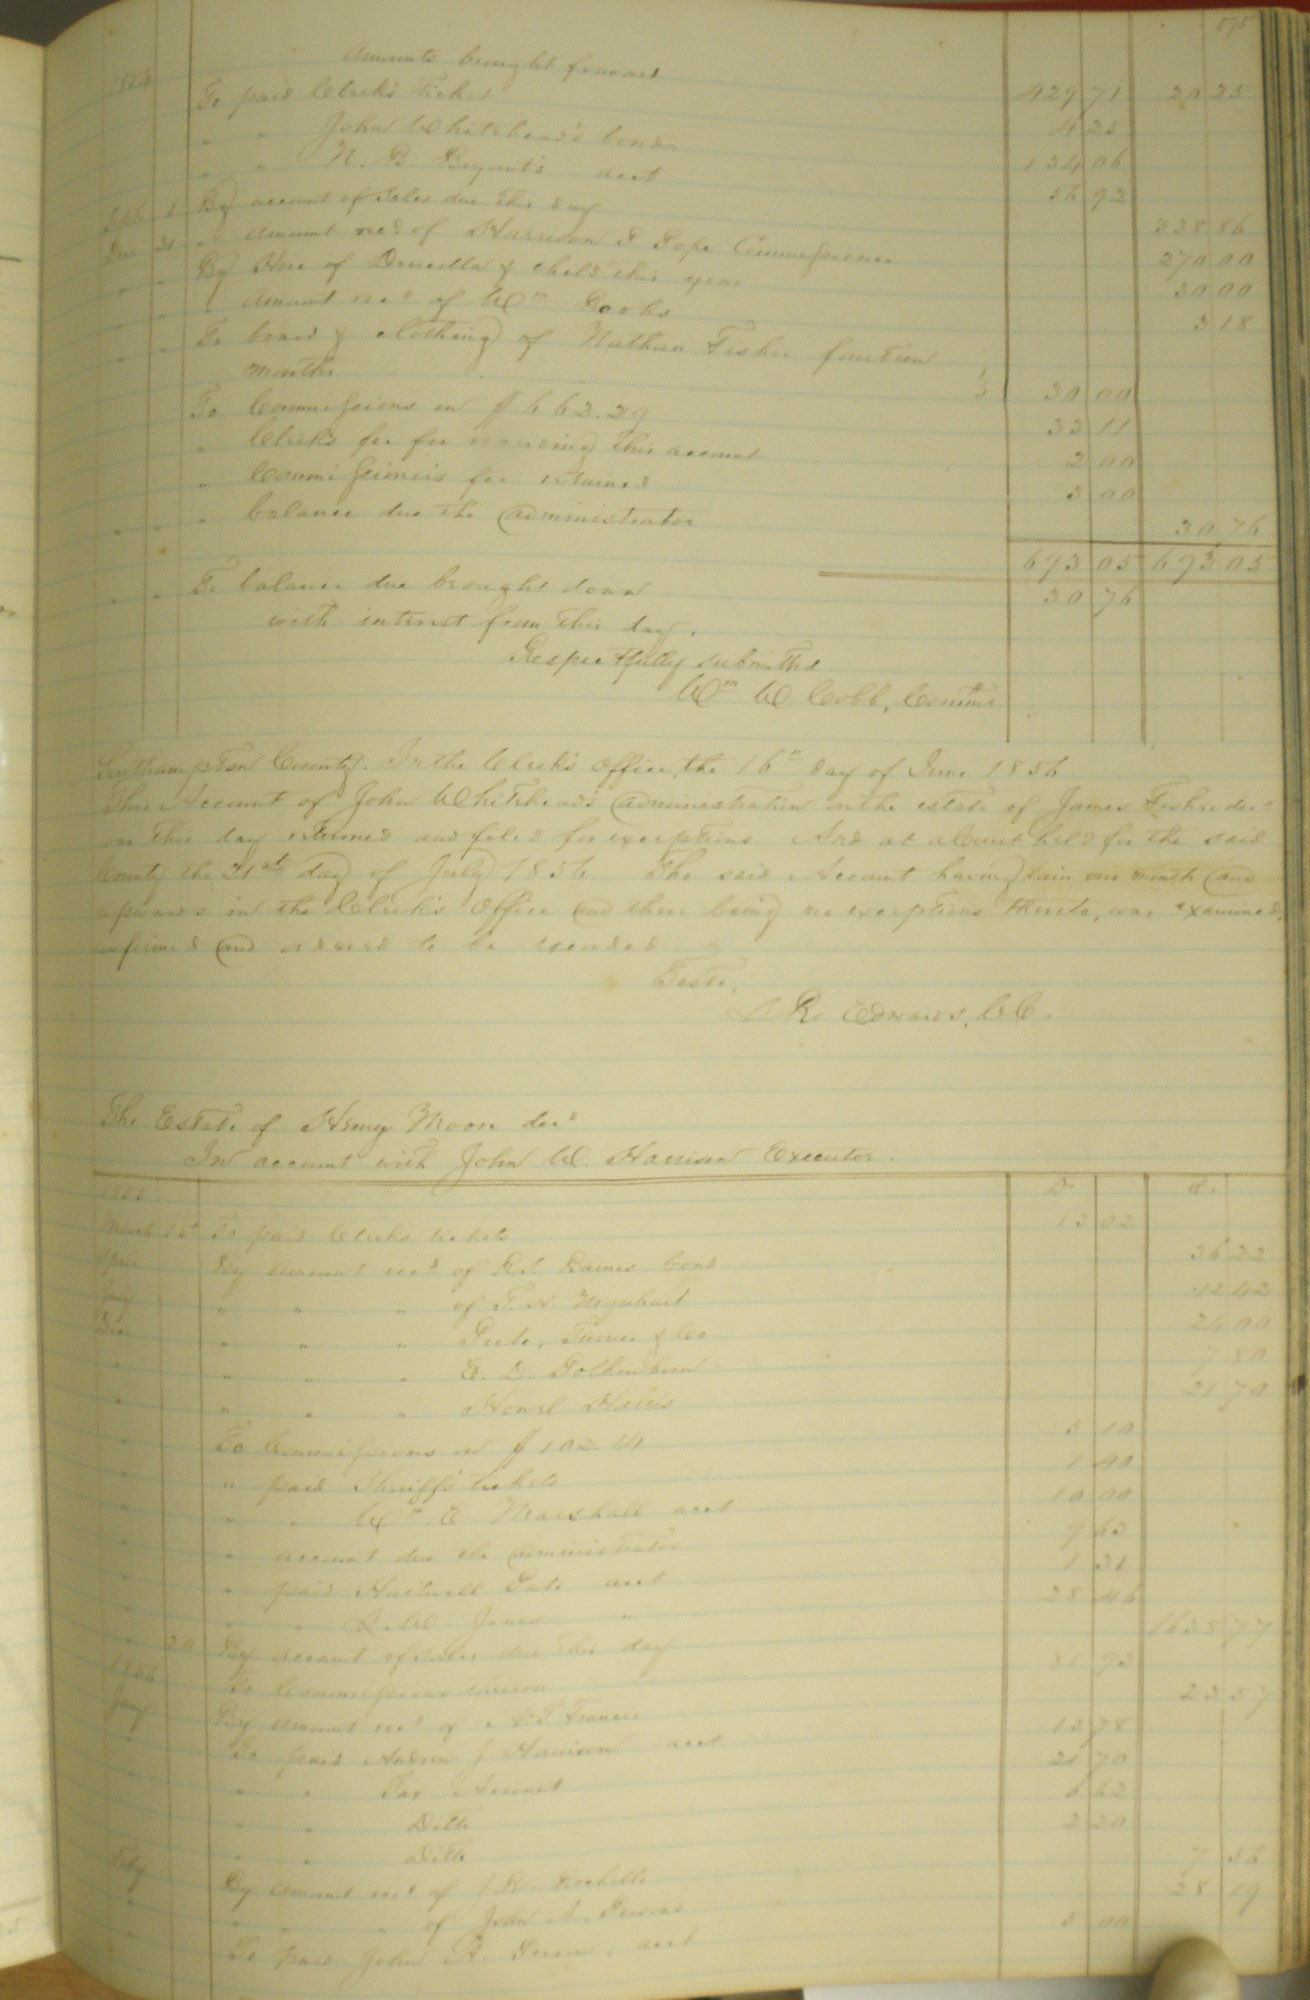 575
Amounts brought forward 429 71 20 25
1854 To paid Clerk's Ticket 4 25
" " John Whitehead's bond 134 06
" " N. B. Bryant's acct 56 92
Sept 1 By account of sales due this day 338 86
Dec 31 " Amount recd of Harrison P Pope Commissioner 270 00
" " By Hire of Drucilla & child this year 30 00
" " " Amount recd of Wm Rooks 3 18
" " To board & clothing of Nathan Fisher fourteen
months 30 00
To Commissions on $ 662.29 33 11
" Clerk's fee for recording this account 2 00
" Commissioner's fee retained 3 00
" " " balance due the administrator 30 76
693 05 693 05
" " To balance due brought down 30 76
with interest from this day.
Respectfully submitted
Wm W. Cobb, Commr
Southampton County. In the Clerk's Office, the 16th day of June 1856
This Account of John Whitehead's administration on the estate of James Fisher decd
was this day returned and filed for exceptions. And at a Court held for the said
County the 21st day of July 1856 The said Account having lain one month and
upwards in the Clerk's Office and there being no exceptions thereto, was examined,
confirmed and ordered to be recorded
Teste,
L R. Edwards, CC.
The Estate of Henry Moore decd
In account with John W. Harrison Executor.
1855 Dr Cr.
March 15th To paid Clerk's tickets 13 02
April By amount recd of R.S. Barnes bond 36 22
July " " " of T. N. Urquhart 12 42
Decr " " " Peete, Turner & Co 24 00
" " " " E. D. Polkinhorn 7 80
" " " " Howel Harris 21 70
" To Commissions on $ 102.14 5 10
" " paid Sheriff's tickets 1 40
" " " Wm E. Marshall acct 10 00
" " account due the administrator 9 63
" " paid Hartwell Pate acct 1 31
" " " L. W. Jones " 28 46
" 20 By account of sales due this day 1638 77
1856 To Commissions thereon 81 93
Jany By amount recd of N. T. Francis 23 57
" To paid Andrew J. Harrison acct 13 78
" " Tax Account 21 70
" " Ditto 6 62
" " Ditto 2 20
Feby By amount recd of J. R. Rochelle 7 56
" " " " of John A. Persons 28 19
" To paid John A. Persons, acct 5 00